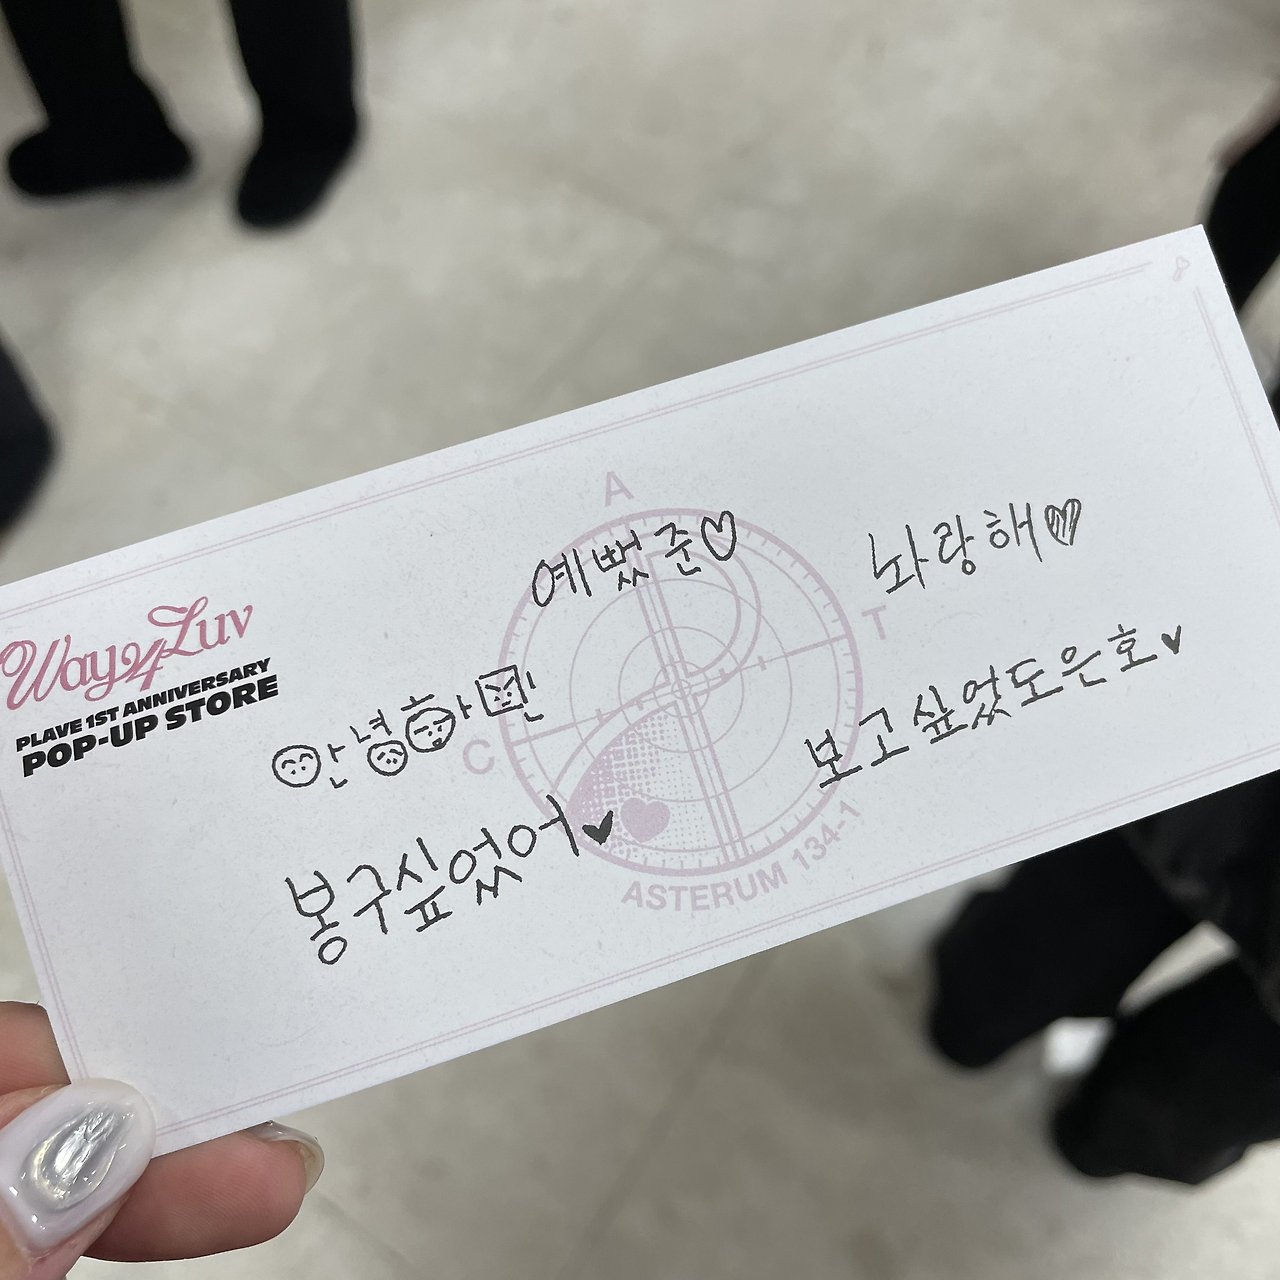 Way 4 Luv
PLAVE 1ST ANNIVERSARY
POP-UP STORE
A
T
C
ASTERUM 134-1
예뻤준♡
놔랑해♡
안녕하민
보고싶었도은호♥
봉구싶었어♥